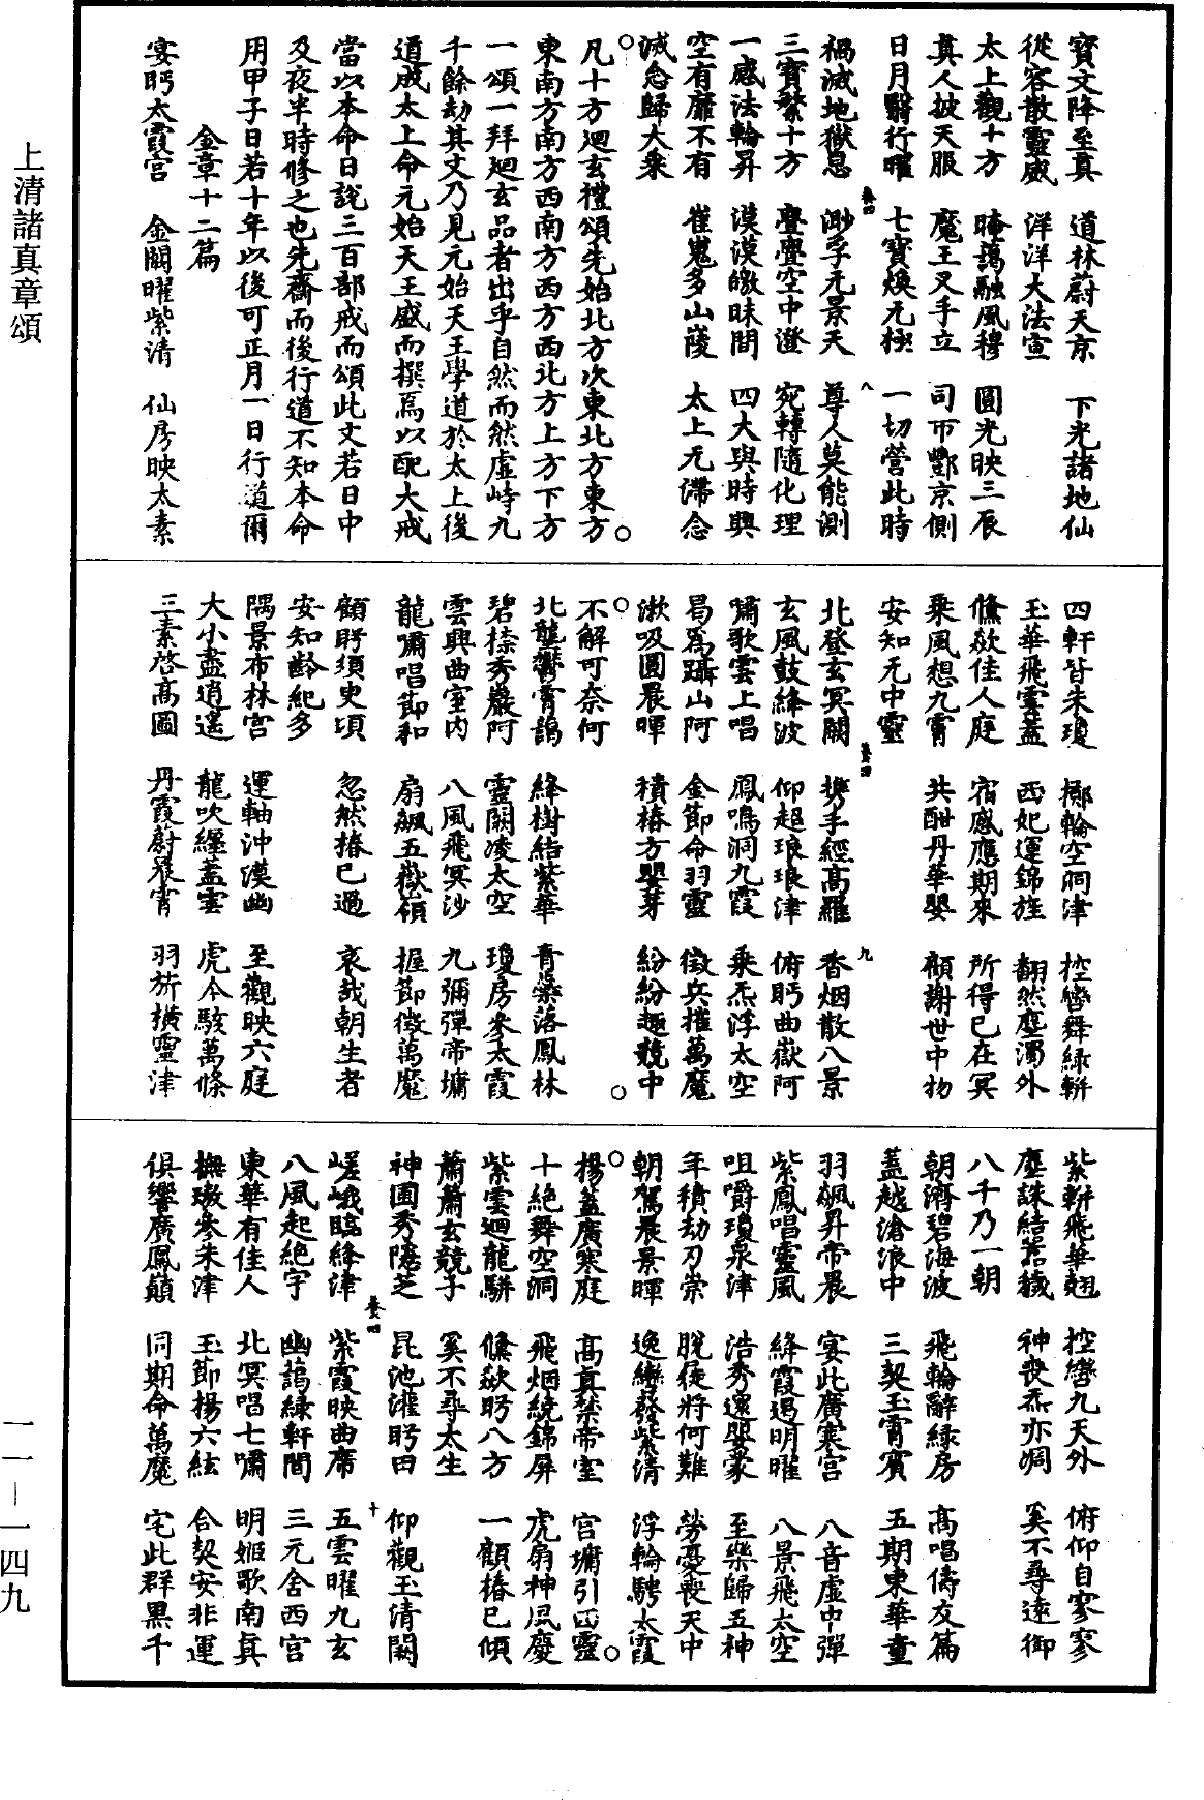 寶文降至真　道林蔚天京　下光諸地仙
從容散靈威　洋洋大法宣
太上觀十方　晻藹融風穆　圓光映三辰
真人披天服　魔王叉手立　司帀酆京側
日月翳行曜　七寶煥无極　一切營此時
禍滅地獄息　渺乎元景天　尊人莫能測
三寶縈十方　疊疊空中澄　宛轉隨化理
一感法輪昇　漠漠皦昧間　四大與時興
空有靡不有　崔嵬多山陵　太上无滯念
滅念歸大乘
凡十方迴玄禮頌先始北方次東北方東方
東南方南方西南方西方西北方上方下方
一頌一拜迴玄品者出乎自然而然虛峙九
千餘劫其文乃見元始天王學道於太上後
道成太上命元始天王盛而撰焉以配大戒
當以本命日說三百部戒而頌此文若日中
及夜半時修之也先齋而後行道不知本命
用甲子日若十年以後可正月一日行道爾
金章十二篇
宴眄太霞宮　金闕曜紫清　仙房映太素
四軒皆朱瓊　擲輪空洞津　控轡舞綠軿
玉華飛雲蓋　西妃運錦旌　翻然塵濁外
倏欻佳人庭　宿感應期來　所得已在冥
乘風想九霄　共酣丹華嬰　顧謝世中物
安知元中靈
北登玄冥闕　携手經高羅　香烟散八景
玄風鼓絳波　仰超琅琅津　俯眄曲嶽阿
嘯歌雲上唱　鳳鳴洞九霞　乘炁浮太空
曷為躡山阿　金節命羽靈　徵兵摧萬魔
漱吸圓晨暉　積椿方嬰芽　紛紛趣競中
不解可奈何
北壟鬱霄鵠　絳樹結紫華　青藥落鳳林
碧柰秀巖阿　靈闕凌太空　瓊房參太霞
雲興曲室內　八風飛冥沙　九彌彈帝墉
龍嘯唱節和　扇飆五嶽領　握節徵萬魔
顧眄須臾頃　忽然椿已過　哀哉朝生者
安知齡紀多
隅景布林宮　運軸沖漠幽　至觀映六庭
大小盡逍遙　龍吹纏蓋雲　虎仐駭萬條
三素啓高圖　丹霞蔚晨霄　羽旂橫靈津
紫軿飛華翹　控轡九天外　俯仰自寥寥
塵誅結惹穢　神喪炁亦凋　奚不尋遠御
八千乃一朝
朝濟碧海波　飛輪辭綠房　高唱儔友篇
蓋越滄浪中　三契玉霄賓　五期東華童
羽飆昇帝晨　宴此廣寒宮　八音虛中彈
紫鳳唱靈風　絳霞遏明曜　八景飛太空
咀嚼瓊泉津　浩秀還嬰蒙　至樂歸五神
年積劫刃崇　脫屣將何難　勞憂喪天中
朝駕晨景暉　逸轡發紫清　浮輪騁太霞
揚蓋廣寒庭　高真禁帝室　宮墉引西靈
十絕舞空洞　飛烟繞錦屏　虎扇神風廢
紫雲迴龍駢　倏欻眄八方　一顧椿已傾
蕭蕭玄競子　奚不尋太生
神圃秀隱芝　昆池灌眄田　仰觀玉清闕
嵯峨臨絳津　紫霞映曲席　五雲曜九玄
八風起絕宇　幽藹綠軒間　三元舍西宮
東華有佳人　北冥唱七嘯　明姬歌南真
撫璈參朱津　玉節揚六絃　合契安非運
俱響廣鳳巔　同期命萬魔　宅此群黑千
養四
八
養四
九
養四
十
上清諸真章頌
一一－一四九